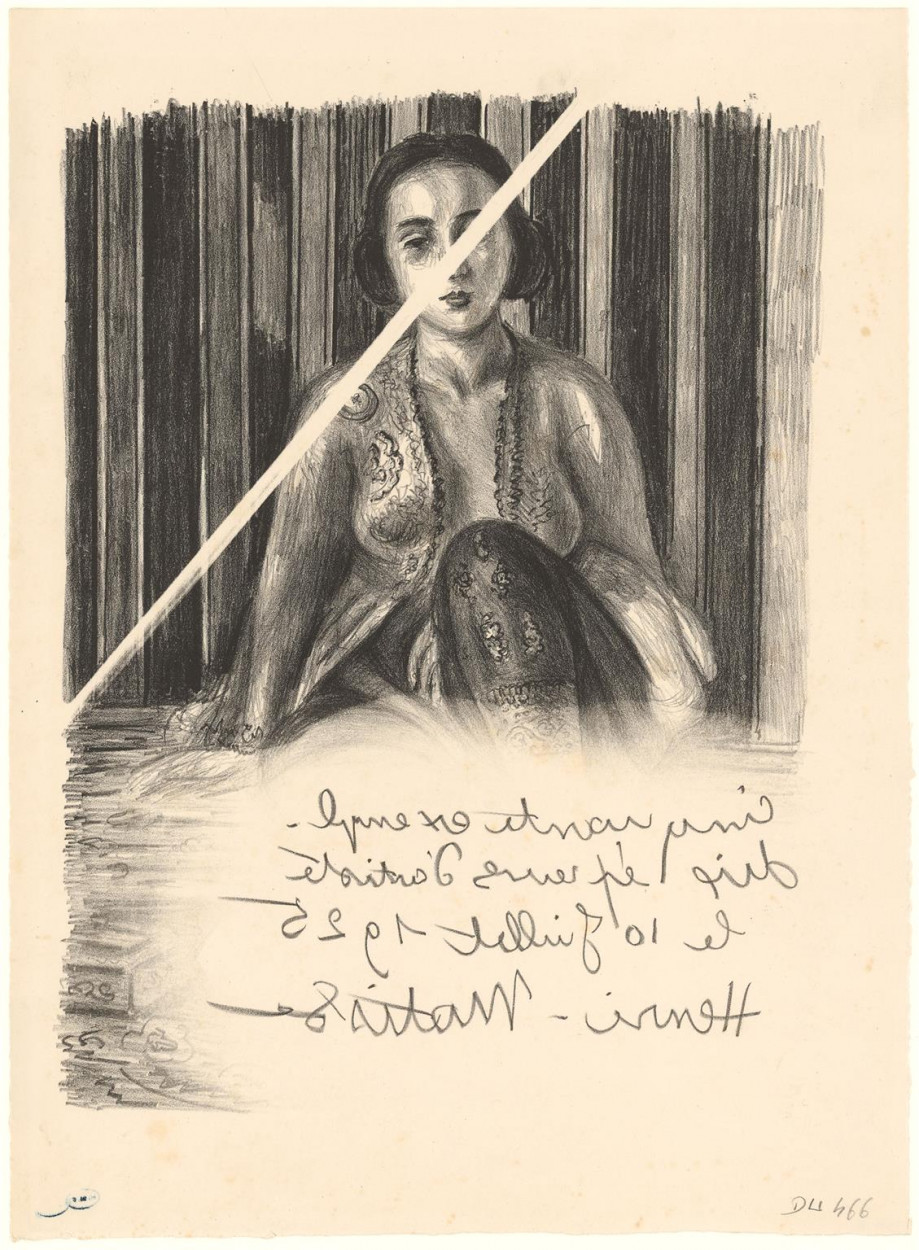 Cinquante exempl-
dix épreuves d'artiste
le 10 Juillet 1925
Henri-Matisse
DU 466